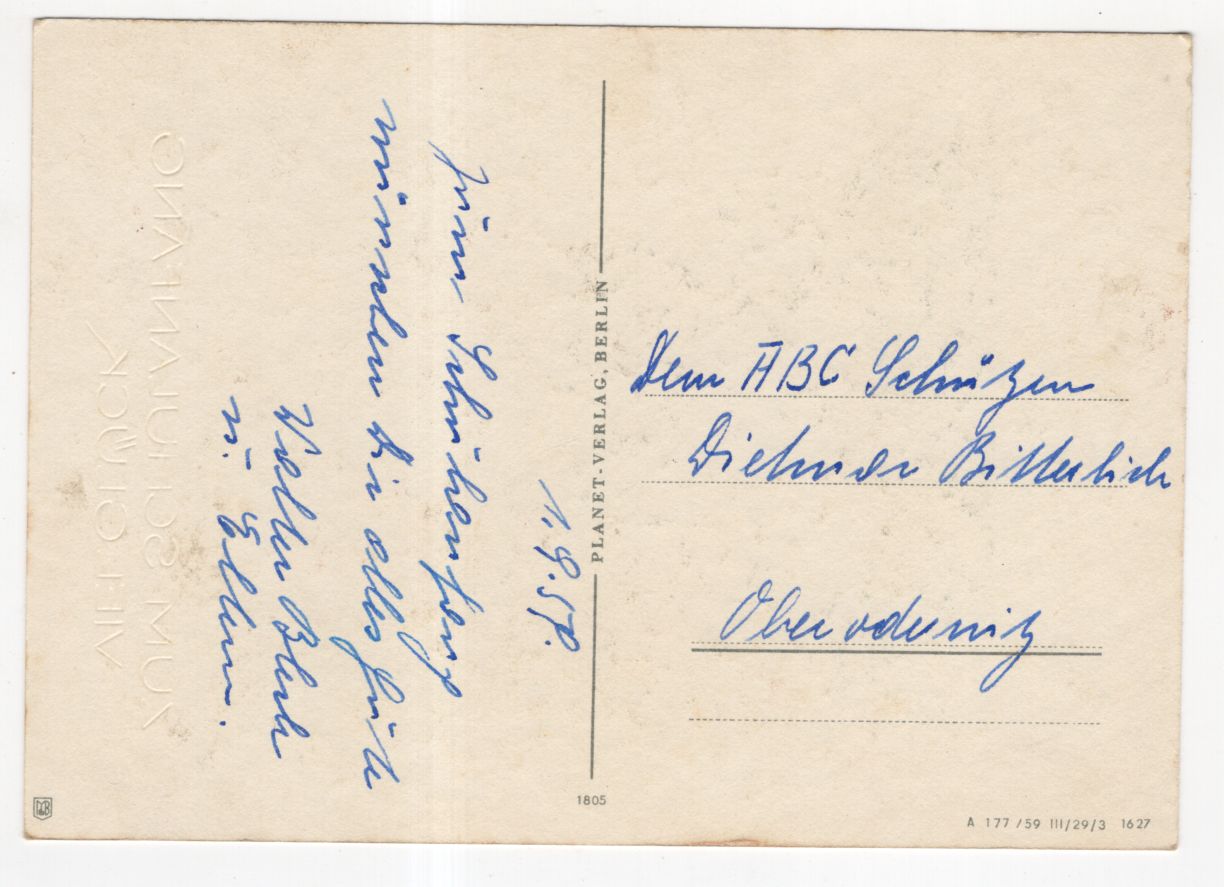 1.9.59.
Zum Schulanfang
wünschen Dir alles Gute
Walter
u. Eltern.
VIEL GLÜCK
ZUM SCHULANFANG
PLANET-VERLAG, BERLIN
Dem ABC Schützen
Dietmar Bitterlich
Oberoderwitz
1805
A 177/59 III/29/3 1627